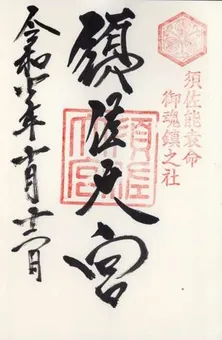 須佐能袁命
御魂鎮之社
須佐大宮
須佐大宮
令和元年十月十六日